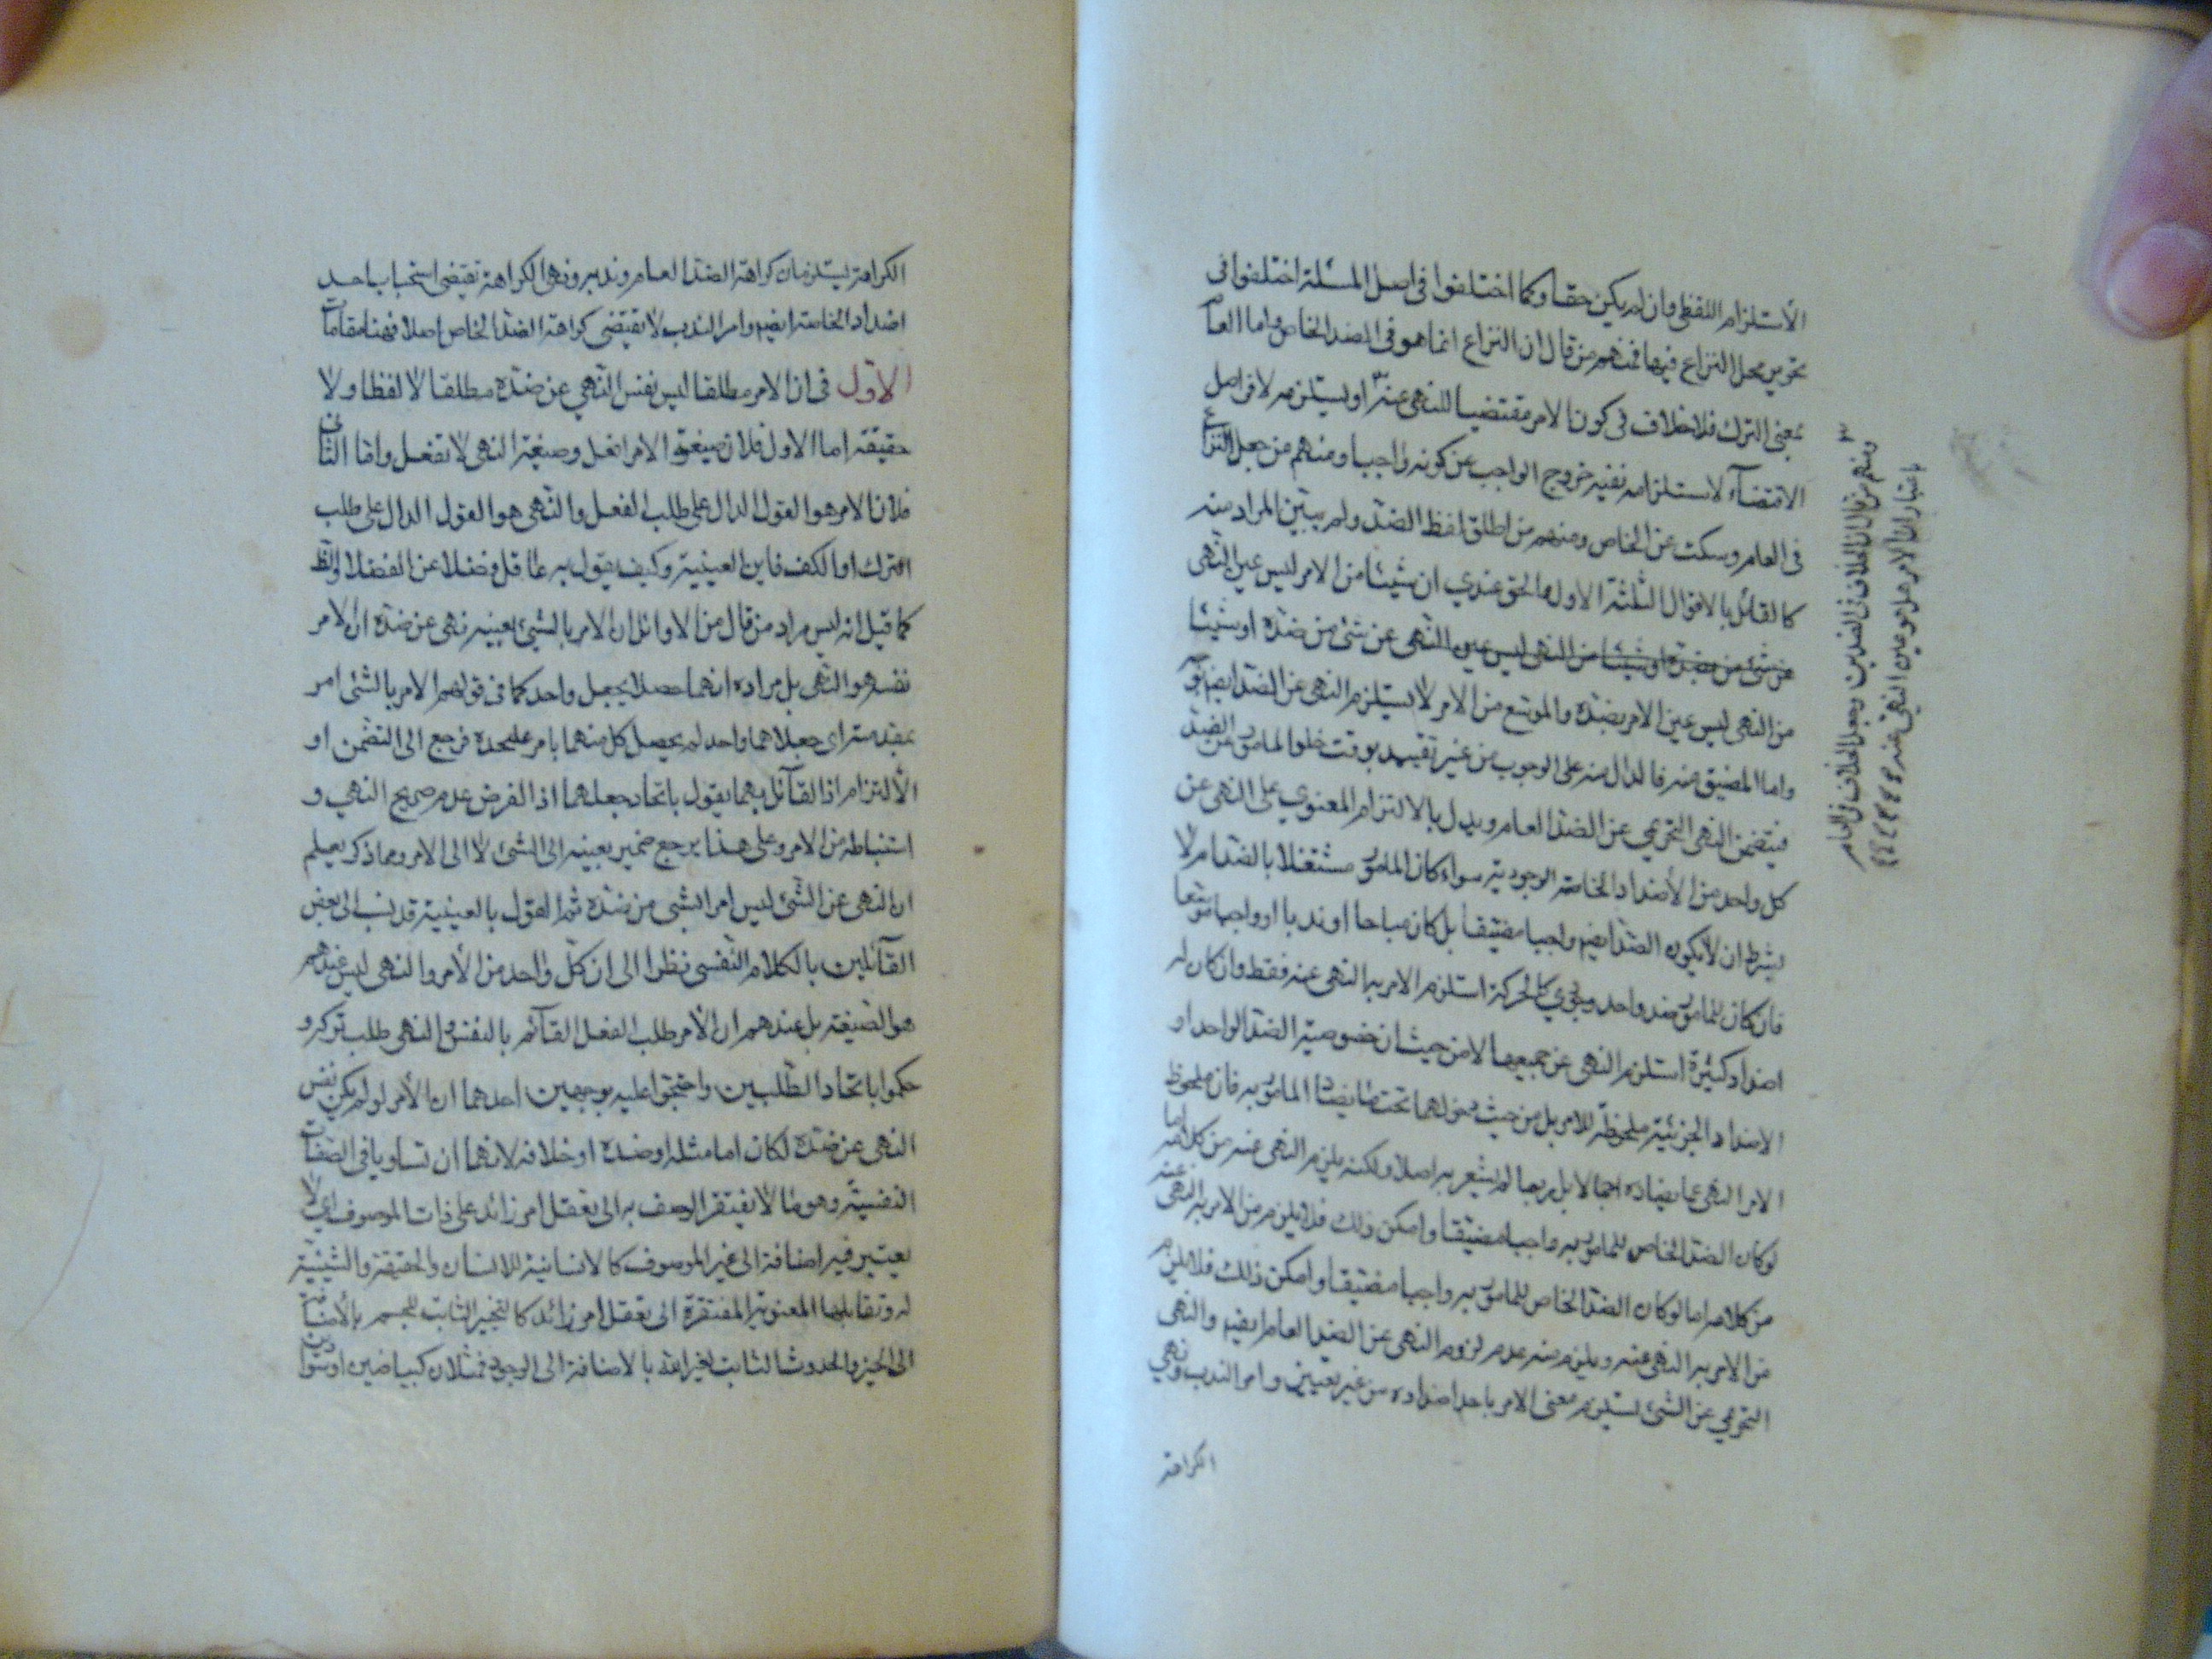 الاستلزام اللفظي وان لم يكن حقا وكما اختلفوا في اصل المسئلة اختلفوا في
تحرير محل النزاع فيها فمنهم من قال ان النزاع انما هو في الضد الخاص واما العام
بمعنى الترك فلا خلاف في كون الامر مقتضيا للنهي عنه او يستلزمه لا في اصل
الاقتضاء لاستلزامه نفيه خروج الواجب عن كونه واجبا ومنهم من جعل النزاع
في العام وسكت عن الخاص ومنهم من اطلق لفظ الضد ولم يبين المراد منه
كالقائل بالاقوال الثلثة الاول والحق عندي ان شيئا من الامر ليس عين النهي
عن شئ من ضده او شيئا من النهي ليس عين النهي عن شئ من ضده او شيئا
من النهي ليس عين الامر بضده والموسع من الامر لا يستلزم النهي عن الضد ايضم
واما المضيق منه فالدال منه على الوجوب من غير تقييد بوقت خلو المامور عن الضد
فيتضمن النهي التحريمي عن الضد العام ويدل بالالتزام المعنوي على النهي عن
كل واحد من الأضداد الخاصة الوجودية سواء كان المامور مشتغلا بالضد ام لا
بشرط ان لا يكون الضد ايضم واجبا مضيقا بل كان مباحا او ندبا او واجبا موسعا
فان كان للمامور ضد واحد وجودي كالحركة استلزم الامر به النهي عنه فقط وان كان له
اضداد كثيرة استلزم النهي عن جميعها لا من حيث ان خصوصية الضد الواحد او
الاضداد الجزئية ملحوظة للامر بل من حيث دخولهما تحت ما يضاد المامور به فان ملحوظ
الامر النهي عما يضاده اجمالا بل ربما لم يشعر به اصلا ولكنه يلزم النهي عنه من كلامه اما
لوكان الضد الخاص للمامور به واجبا مضيقا وامكن ذلك فلا يلزم من الامر به النهي عنه
من كلامه اما لوكان الضد الخاص للمامور به واجبا مضيقا وامكن ذلك فلا يلزم
من الامر به النهي عنه ويلزم منه عدم لزوم النهي عن الضد العام ايضم والنهي
التحريمي عن الشئ يستلزم معنى الامر باحد اضداده من غير تعيين وامر الندب ونهي
الكراهة
ومنهم من قال ان الخلاف في الضدين وجعل الخلاف في العام
باعتبار ان الامر هل هو عين النهي عنه
الكراهة يستلزمان كراهة الضد العام وندبه ونهي الكراهة تقتضي استحباب احد
اضداد الخاصة ايضم وامر الندب لا يقتضي كراهة الضد الخاص اصلا فهنا مقامات
الاول في ان الامر مطلقا ليس نفس النهي عن ضده مطلقا لا لفظا ولا
حقيقة اما الاول فلان صيغة الامر افعل وصيغة النهي لا تفعل واما الثاني
فلان الامر هو القول الدال على طلب الفعل والنهي هو القول الدال على طلب
الترك او الكف فاين العينية وكيف يقول به عاقل فضلا عن الفضلا والظ
كما قيل انه ليس مراد من قال من الاوائل ان الامر بالشئ بعينه نهي عن ضده ان الامر
نفسه هو النهي بل مراده انهما حصلا بجعل واحد كما في قولهم الامر بالشئ امر
بمقدمته اي جعلاهما واحد لم يحصل كل منهما بامر عليحدة فرجع الى التضمن او
الالتزام اذ القائل بهما يقول باتحاد جعلهما اذ الفرض عدم صريح النهي و
استنباطه من الامر وعلى هذا يرجع ضمير بعينه الى الشئ لا الى الامر ومما ذكر يعلم
ان النهي عن الشئ ليس امر الشئ من ضده ثم القول بالعينية قد نسب الى بعض
القائلين بالكلام النفسي نظرا الى ان كل واحد من الأمر والنهي ليس عندهم
هو الصيغة بل عندهم ان الأمر طلب الفعل القائم بالنفس والنهي طلب تركه و
حكموا باتحاد الطلبين واحتجوا عليه بوجهين احدهما ان الأمر لو لم يكن نفس
النهي عن ضده لكان اما مثله او ضده او خلافه لانهما ان تساويا في الصفات
النفسية وهو ما لا يفتقر الوصف به الى تعقل امر زائد على ذات الموصوف اي لا
يعتبر فيه اضافة الى غير الموصوف كالانسانية للانسان والحقيقة والشيئية
له وتقابلها المعنوية المفتقرة الى تعقل امر زائد كالتحيز الثابت للجسم بالأضافة
الى الحيز والحدوث الثابت لغير الله بالاضافة الى الوجود فمثلان كبياضين او سوادين